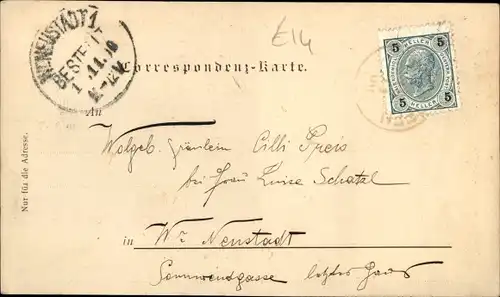 WR. NEUSTADT 1
BESTELLT
£14
Correspondenz-Karte.
5 HELLER 5
5 HELLER 5
An
Wolgeb. Fräulein Cilli Preis
bei Frau Luise Schatzl
in Wr Neustadt
Sonnwendgasse letztes Haus
Nur für die Adresse.